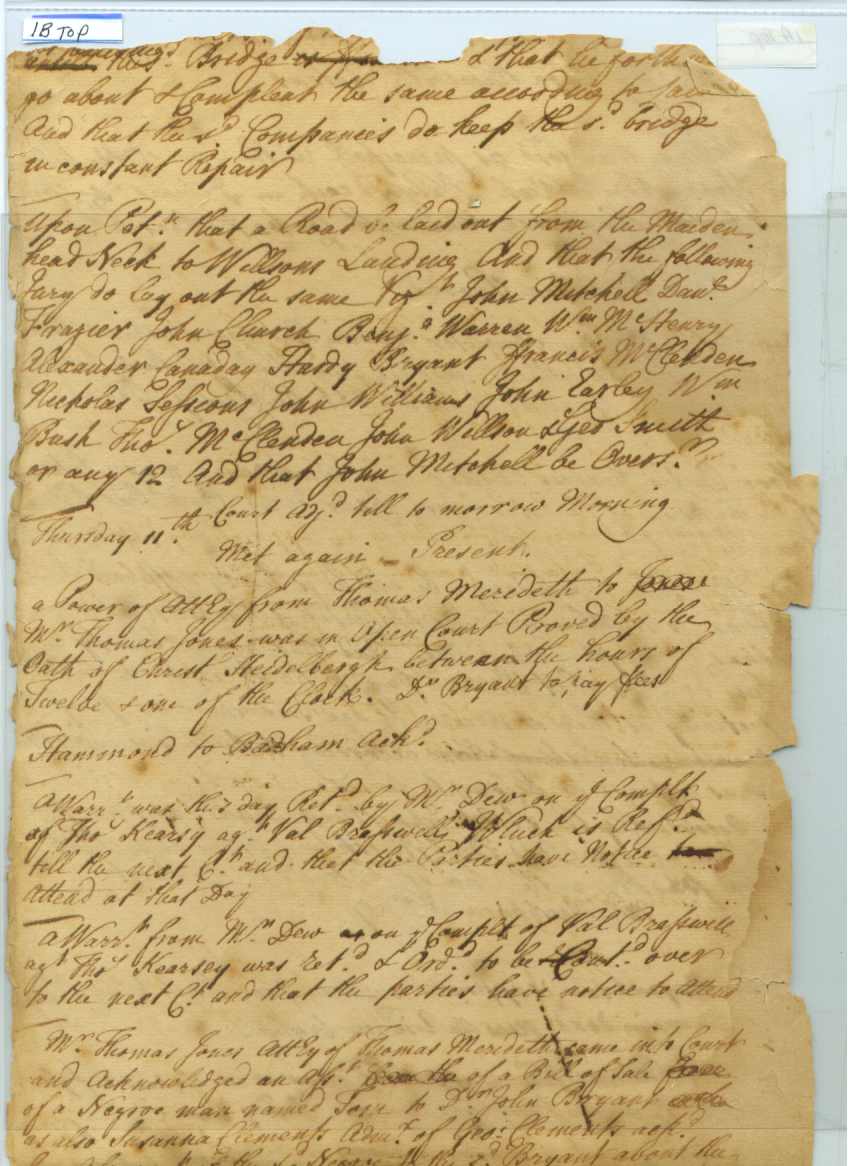 1B TOP
the sd. Bridge & that he forth
go about & Compleat the same according to
And that the sd. Companies do keep the sd. bridge
in constant Repair
Upon Petn. that a Road be laid out from the Maiden
head Neck to Willsons Landing And that the following
Jury do lay out the same Vizt. John Mitchell Danl.
Frazier John Church Benja. Warren Wm. McHenry
Alexander Canaday Hardy Bryant Francis McClenden
Nicholas Sessions John Williams John Earley Wm
Bush Thos. McClenden John Willson & Geo Smith
or any 12 And that John Mitchell be Oversr.
Court Adjd. till to morrow Morning
Thursday 11th.
Met again - Present.
a Power of Atty from Thomas Merideth to Jones
Mr. Thomas Jones was in Open Court Proved by the
Oath of Christ. Heidelbergh between the hours of
Twelve & one of the Clock. Dr. Bryant to pay fees
Hammond to Badham Ackd.
A Warrt. was this day Retd. by Mr. Dew on ye Complt
of Thos Kearsy agt. Val Brasswell which is Refd.
till the next Ct. and that the Parties have Notice to
attend at that Day
A Warrt. from Mr. Dew on ye Complt of Val Brasswell
agt. Thos Kearsey was retd. & Ordd. to be Contd. over
to the next Ct. and that the parties have notice to attend
Mr. Thomas Jones Atty of Thomas Merideth came into Court
and Acknowledged an Asst. of a Bill of Sale
of a Negroe man named to Dr. John Bryant
as also Susanna Clements Admx. of Geo: Clements
the sd. Negroe the sd. Bryant about the